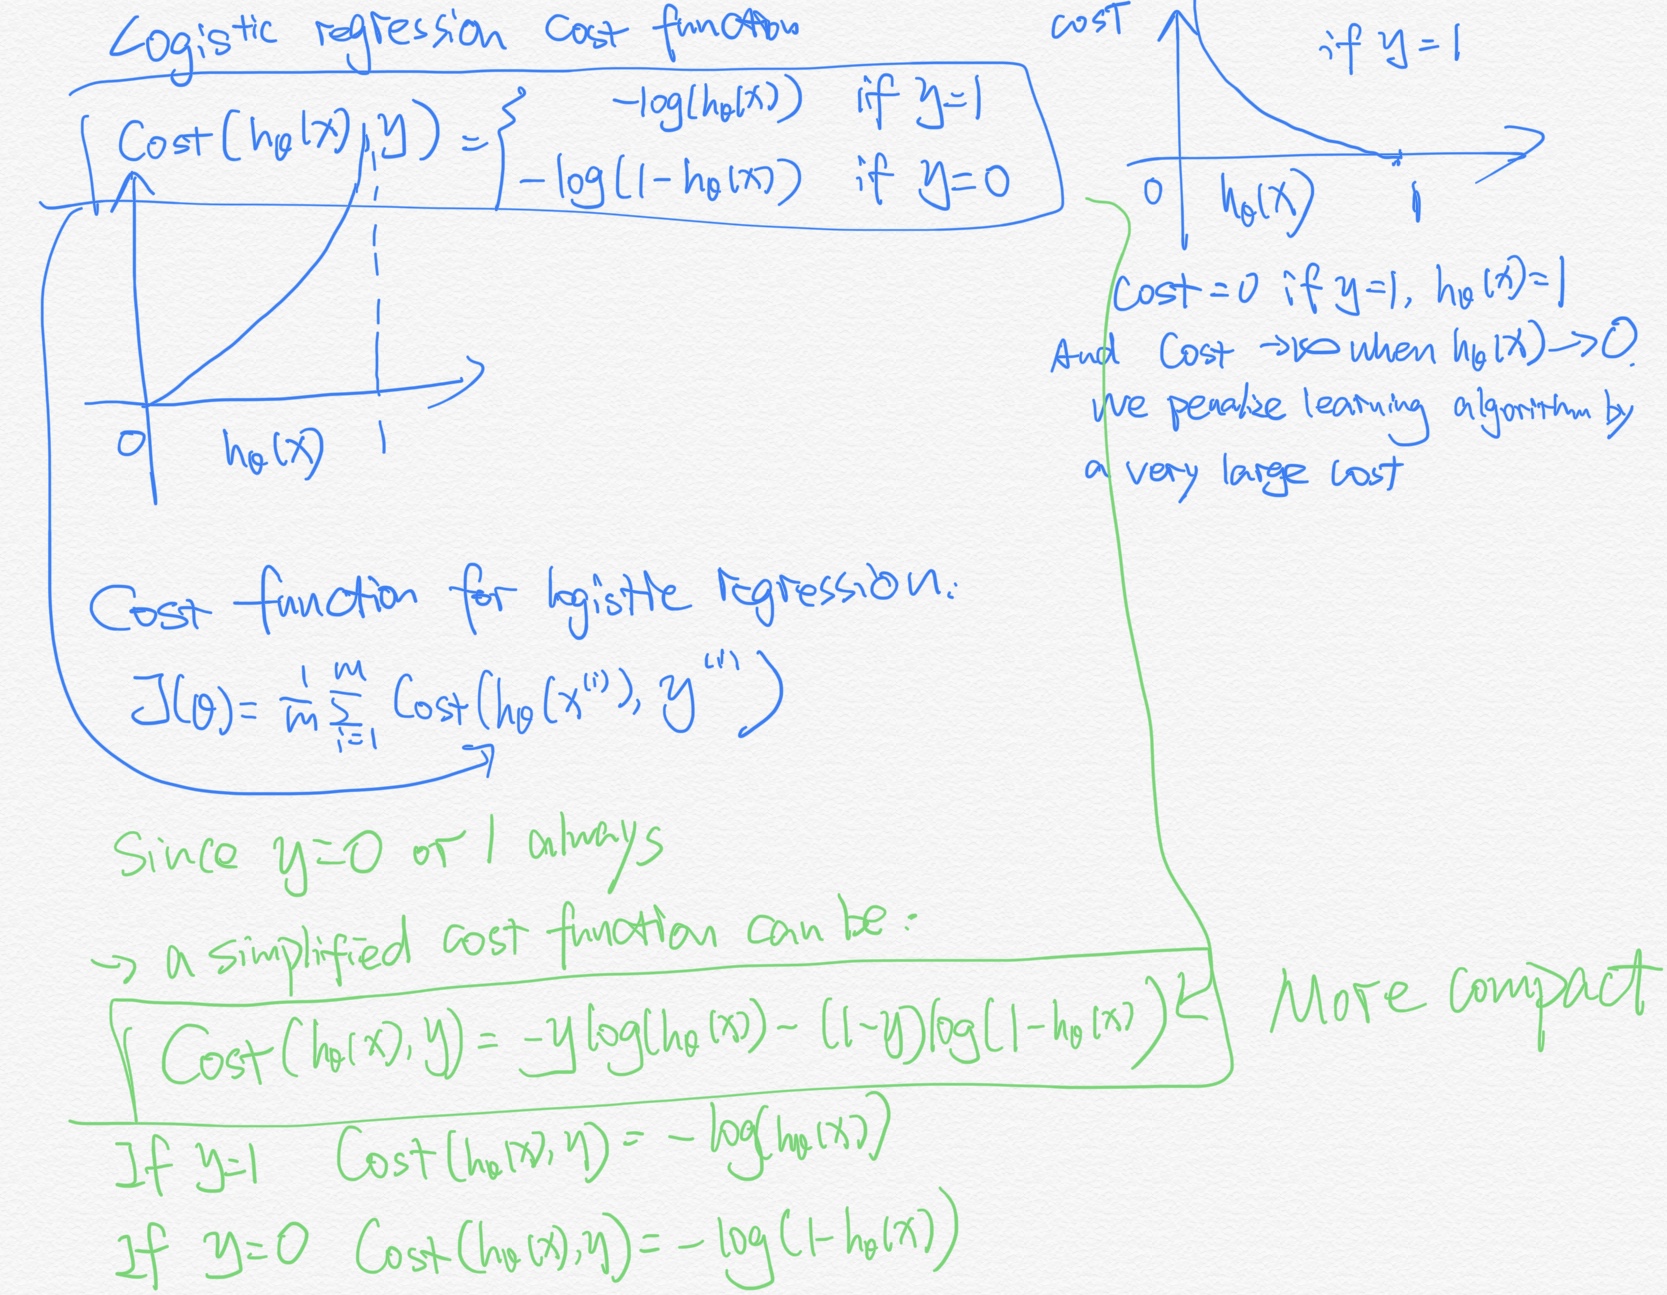 Logistic regression cost function
Cost(hθ(x),y) = { -log(hθ(x)) if y=1
-log(1-hθ(x)) if y=0
0 hθ(x) 1
cost if y=1
0 hθ(x) 1
Cost=0 if y=1, hθ(x)=1
And Cost →∞ when hθ(x)→0.
We penalize learning algorithm by
a very large cost
Cost function for logistic regression:
J(θ)= 1/m Σ_{i=1}^{m} Cost(hθ(x^(i)), y^(i))
Since y=0 or 1 always
→ a simplified cost function can be:
Cost(hθ(x),y) = -y log(hθ(x)) - (1-y)log(1-hθ(x))
More compact
If y=1 Cost(hθ(x),y) = -log(hθ(x))
If y=0 Cost(hθ(x),y) = -log(1-hθ(x))